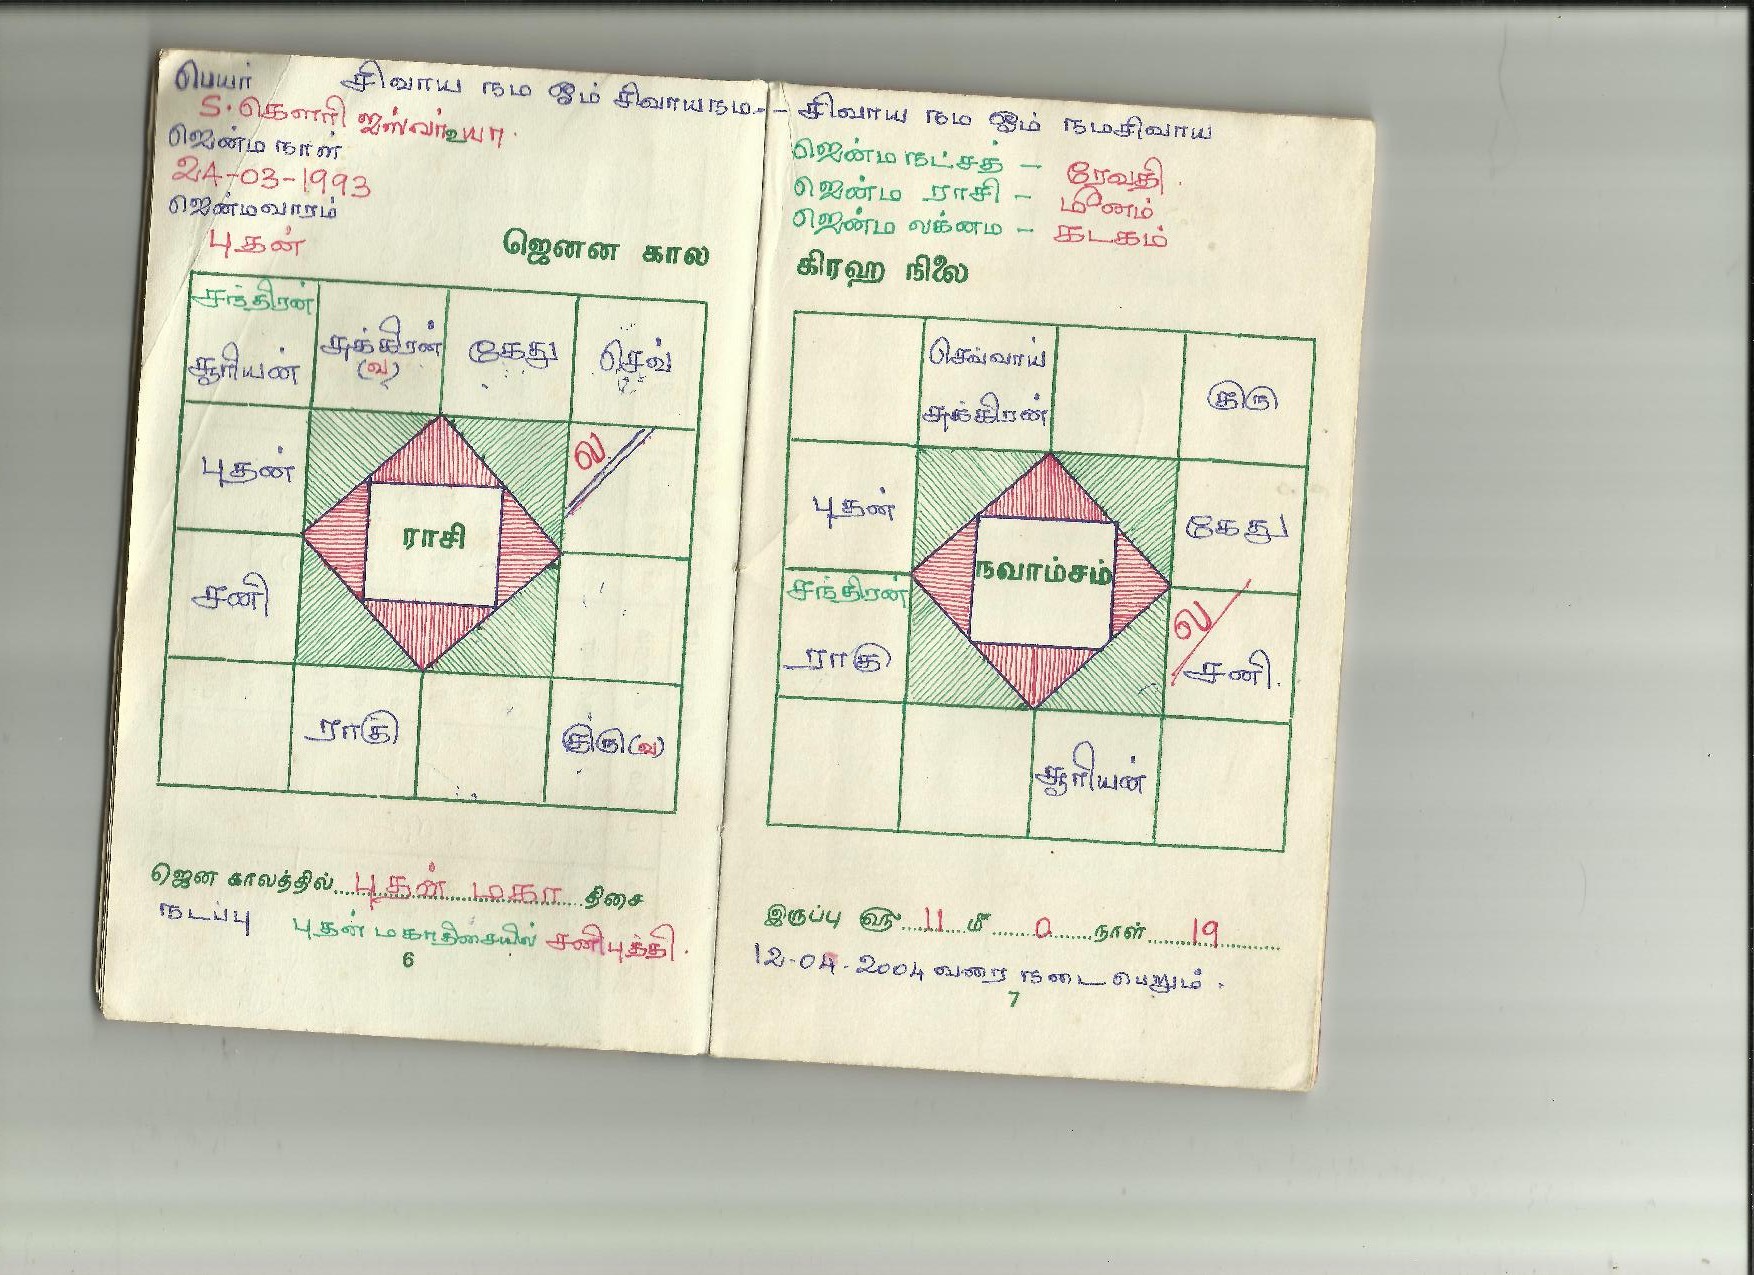 பெயர் சிவாய நம ஓம் சிவாயநம-- சிவாய நம ஓம் நமசிவாய
S. கௌரி ஐஸ்வர்யா.
ஜென்ம நாள்
24-03-1993
ஜென்மவாரம்
புதன்
ஜெனன கால
சந்திரன்
சூரியன்
சுக்கிரன்
(வ)
கேது
செவ்
புதன்
ல
ராசி
சனி
ராகு
குரு(வ)
ஜென காலத்தில்.....புதன் மகா.....திசை
நடப்பு புதன் மகாதிசையில் சனிபுத்தி.
6
ஜென்ம நட்சத் - ரேவதி.
ஜென்ம ராசி - மீனம்
ஜென்ம லக்னம - கடகம்
கிரஹ நிலை
செவ்வாய்
சுக்கிரன்
குரு
புதன்
கேது
நவாம்சம்
சந்திரன்
ராகு
ல
சனி.
சூரியன்
இருப்பு ௵.....11.....௴.....0.....நாள்.....19.....
12-04-2004 வரை நடைபெறும்.
7